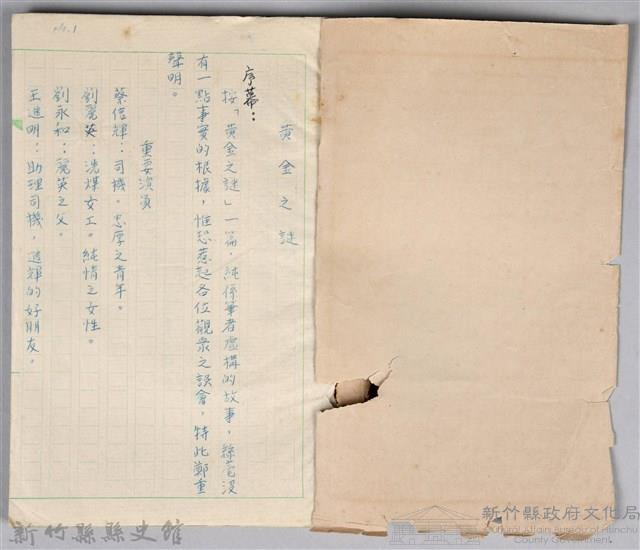 No.1
黃金之謎
序幕：
按「黃金之謎」一篇，純係筆者虛構的故事，絲毫沒
有一點事實的根據，惟恐惹起各位觀眾之誤會，特此鄭重
聲明。
重要演員
蔡信輝：司機。忠厚之青年。
劉麗英：洗煤女工。純情之女性。
劉永和：麗英之父。
王進明：助理司機，進輝的好朋友。
新竹縣縣史館
新竹縣政府文化局
Cultural Affairs Bureau of Hsinchu
County Government